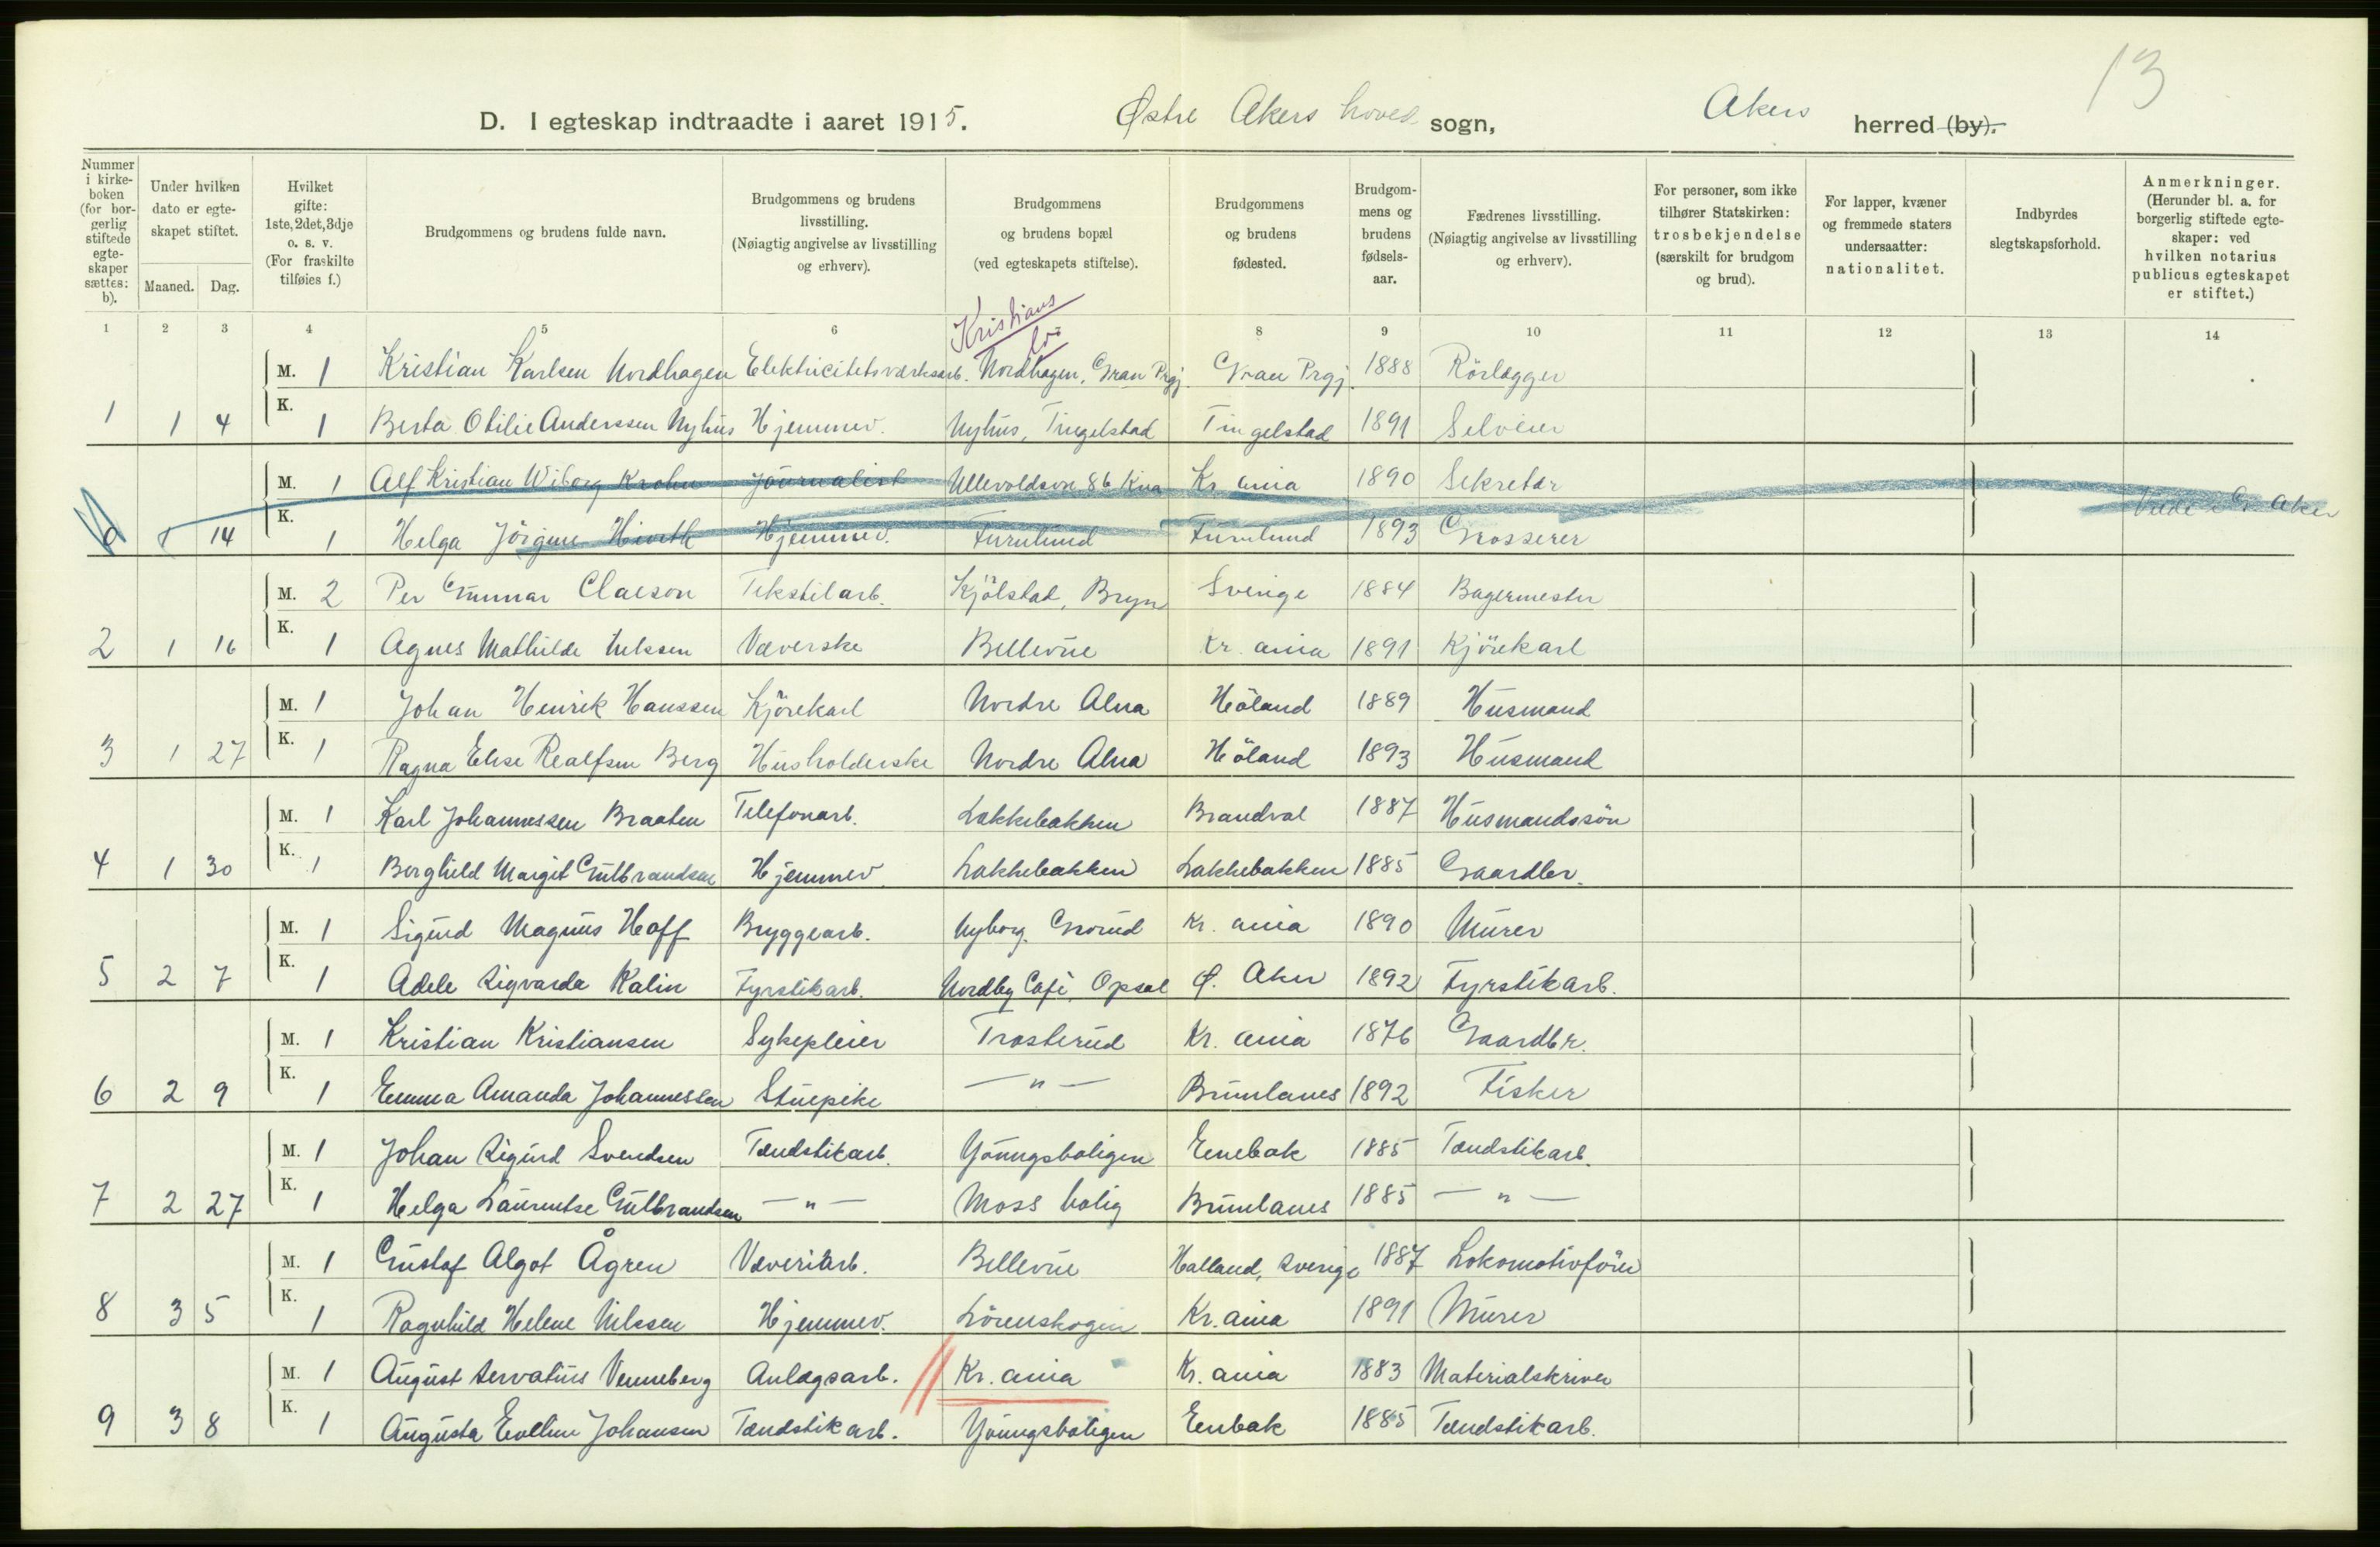 13
D. I egteskap indtraadte i aaret 1915. Østre Akers hoved sogn, Akers herred (by).
Nummer i kirkeboken (for borgerlig stiftede egteskaper sættes: b). Under hvilken dato er egteskapet stiftet. Maaned. Dag. Hvilket gifte: 1ste, 2det, 3dje o. s. v. (For fraskilte tilføies f.) Brudgommens og brudens fulde navn. Brudgommens og brudens livsstilling. (Nøiagtig angivelse av livsstilling og erhverv). Brudgommens og brudens bopæl (ved egteskapets stiftelse). Brudgommens og brudens fødested. Brudgommens og brudens fødselsaar. Fædrenes livsstilling. (Nøiagtig angivelse av livsstilling og erhverv). For personer, som ikke tilhører Statskirken: trosbekjendelse (særskilt for brudgom og brud). For lapper, kvæner og fremmede staters undersaatter: nationalitet. Indbyrdes slegtskapsforhold. Anmerkninger. (Herunder bl. a. for borgerlig stiftede egteskaper: ved hvilken notarius publicus egteskapet er stiftet.)
1 2 3 4 5 6 8 9 10 11 12 13 14
Kristians
M. 1 Kristian Karlsen Nordhagen Elektricitetsværksarb. Nordhagen, Gran Prgj. Gran Prgj. 1888 Rörlægger
1 1 4 K. 1 Berta Otilie Anderssen Nyhus Hjemmev. Nyhus, Tingelstad Tingelstad 1891 Selveier
M. 1 Alf Kristian Wiborg Krohn Journalist Ullevoldsvn 86 Kria Kr. ania 1890 Sekretær
14 K. 1 Helga Jörgine Hieth Hjemmev. Furulund Furulund 1893 Grosserer Aker
M. 2 Per Gunnar Claeson Tekstilarb. Kjölstad, Bryn Sverige 1884 Bagermester
2 1 16 K. 1 Agnes Mathilde Nilssen Væverske Bellevue Kr. ania 1891 Kjörekarl
M. 1 Johan Henrik Hanssen Kjörekarl Nordre Alna Höland 1889 Husmand
3 1 27 K. 1 Ragna Elise Realfsen Berg Husholderske Nordre Alna Höland 1893 Husmand
M. 1 Karl Johannessen Braaten Telefonarb. Lakkebakken Brandval 1887 Husmandssön
4 1 30 K. 1 Borghild Margit Gulbrandsen Hjemmev. Lakkebakken Lakkebakken 1885 Gaardbr.
M. 1 Sigurd Magnus Hoff Bryggearb. Nyborg. Grorud Kr. ania 1890 Murer
5 2 7 K. 1 Adele Sigvarda Kalin Fyrstikarb. Nordby Café, Opsal Ø. Aker 1892 Fyrstikarb.
M. 1 Kristian Kristiansen Sykepleier Trosterud Kr. ania 1876 Gaardbr.
6 2 9 K. 1 Emma Amanda Johannessen Stuepike — " — Brunlanes 1892 Fisker
M. 1 Johan Sigurd Svendsen Tændstikarb. Youngsboligen Enebak 1885 Tændstikarb.
7 2 27 K. 1 Helga Laurentse Gulbrandsen — " — Moss bolig Brunlanes 1885 — " —
M. 1 Gustaf Algot Ågren Væveriarb. Bellevue Halland, Sverige 1887 Lokomotivförer
8 3 5 K. 1 Ragnhild Helene Nilssen Hjemmev. Lörenskogen Kr. ania 1891 Murer
M. 1 August Servatius Venneberg Anlægsarb. Kr. ania Kr. ania 1883 Materialskriver
9 3 8 K. 1 Augusta Eveline Johansen Tændstikarb. Youngsboligen Enbak 1885 Tændstikarb.